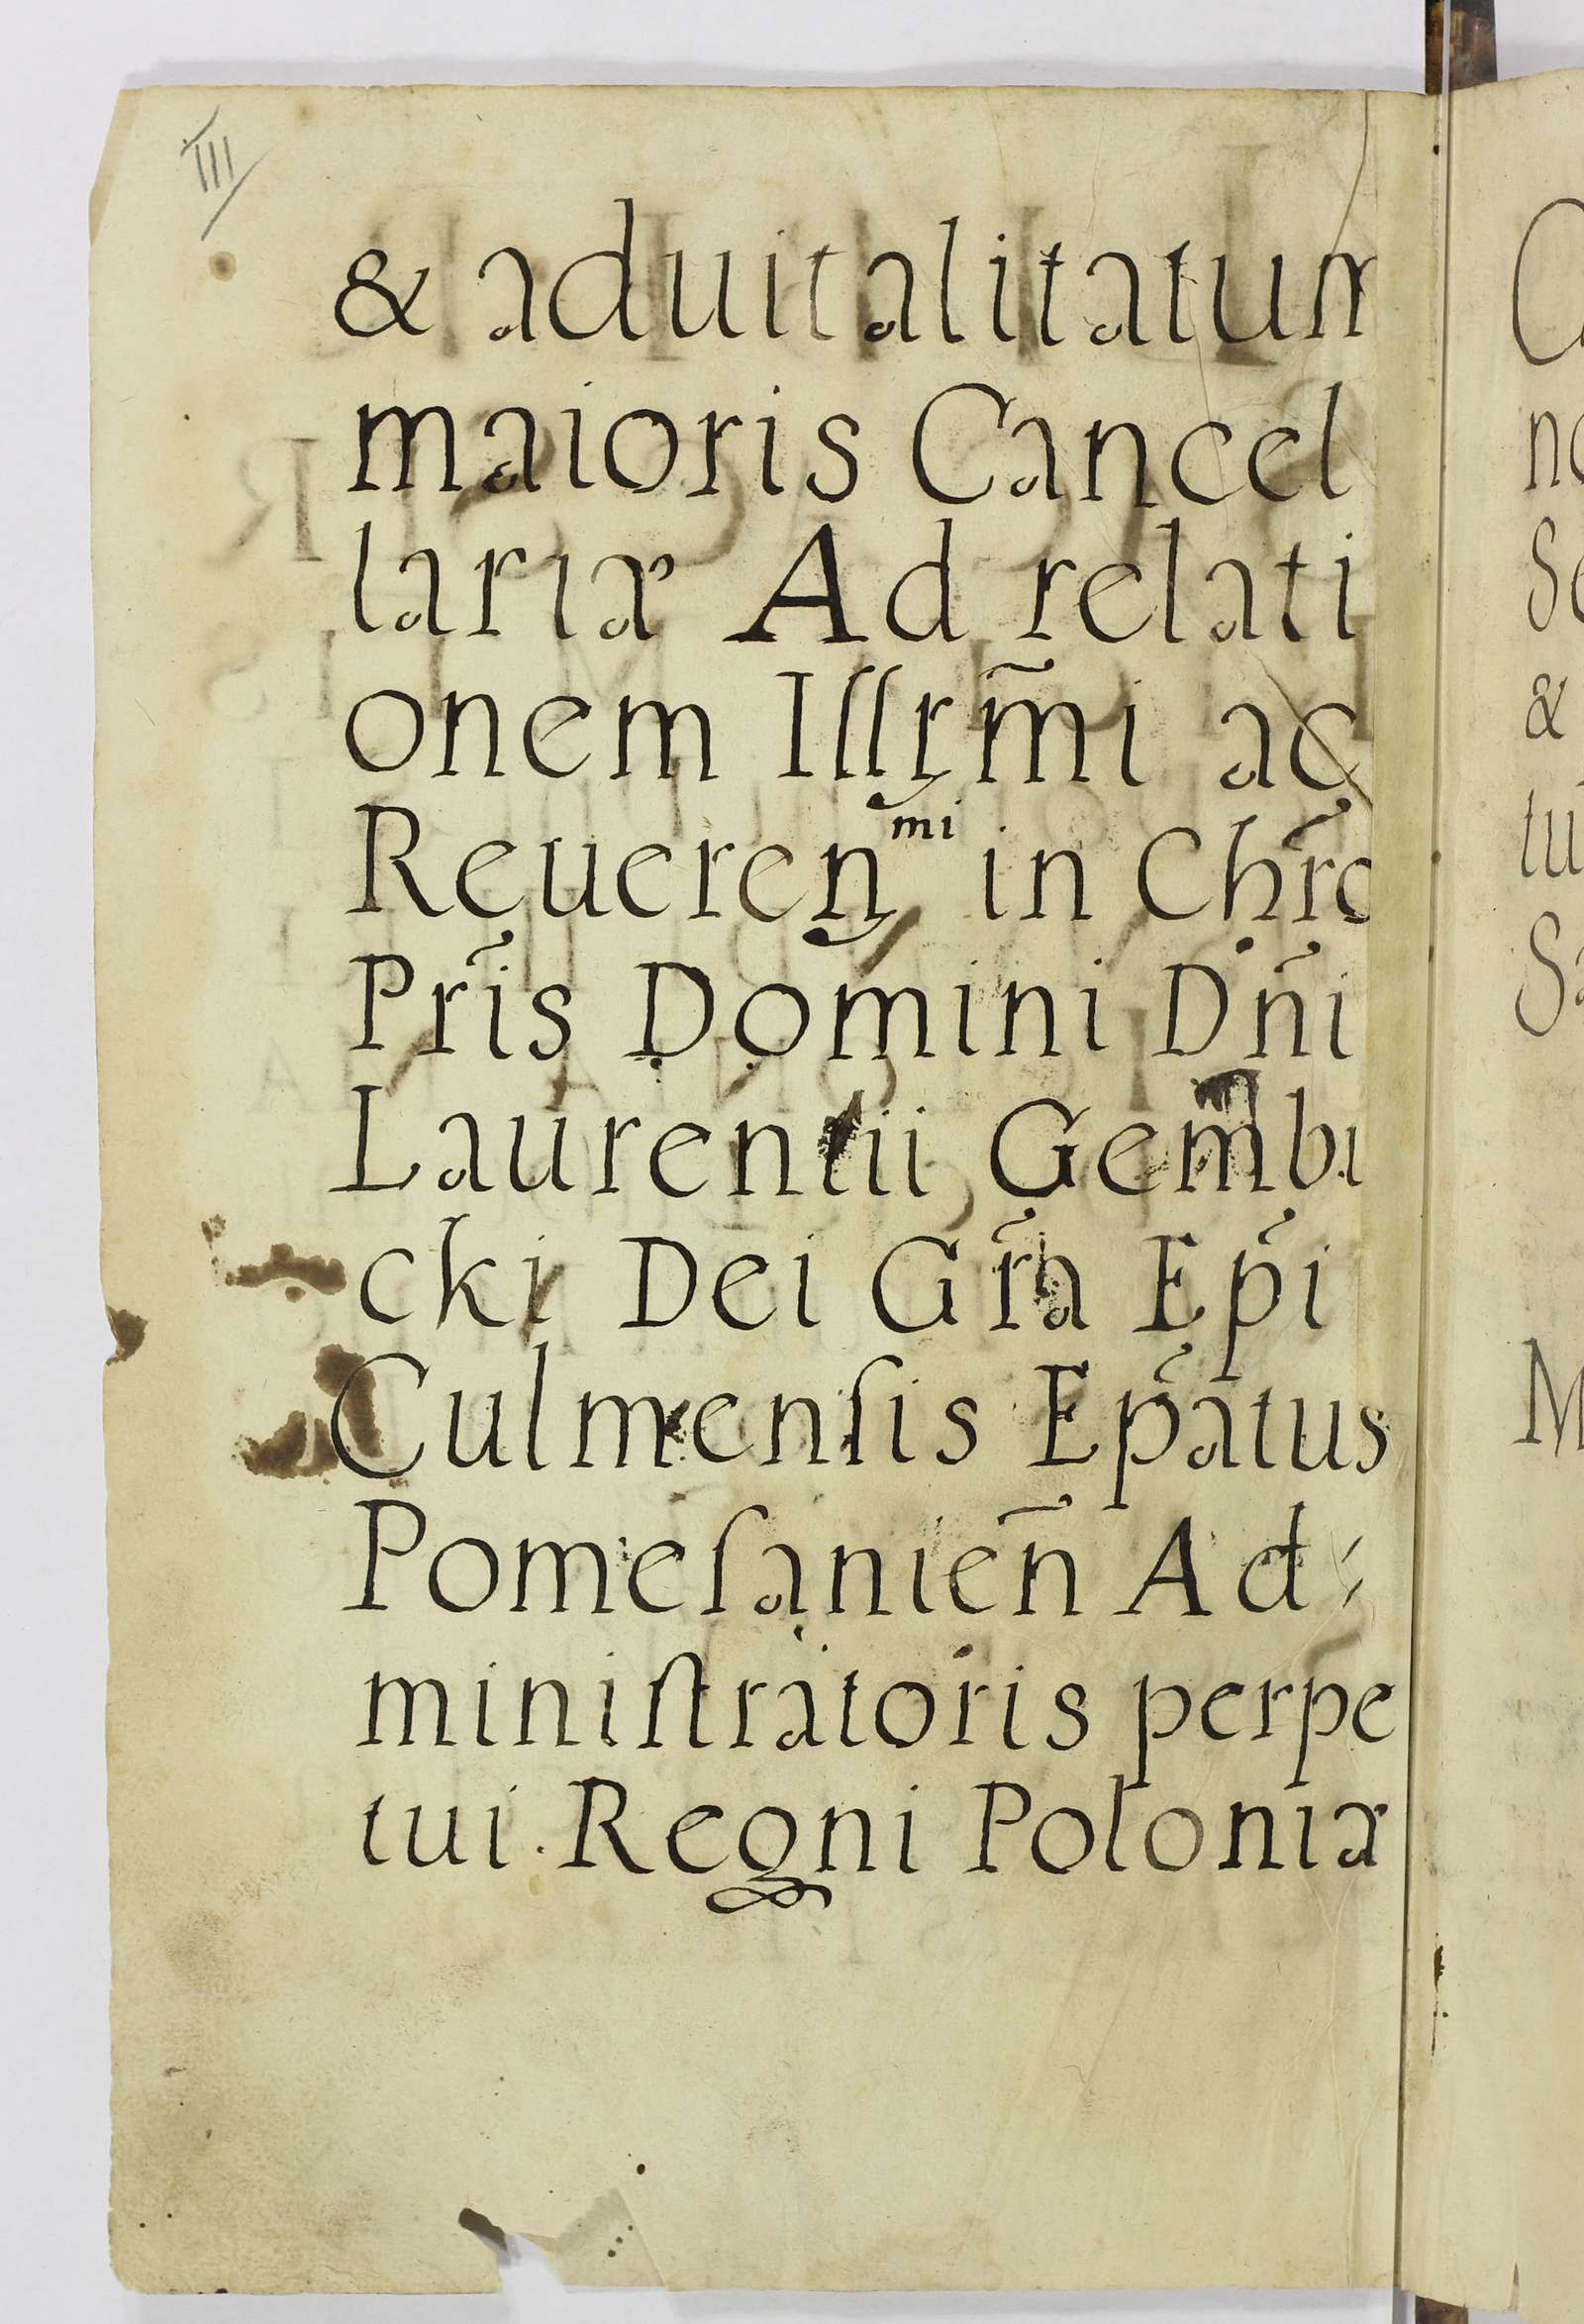 III
& aduitalitatum
maioris Cancel
lariæ Ad relati
onem Illr̃mi ac
Reueren^mi in Chr̃o
Pr̃is Domini Dñi
Laurentii Gembi
cki Dei Gr̃a Ep̃i
Culmenſis Ep̃atus
Pomeſanieñ Ad
miniſtratoris perpe
tui Regni Poloniæ